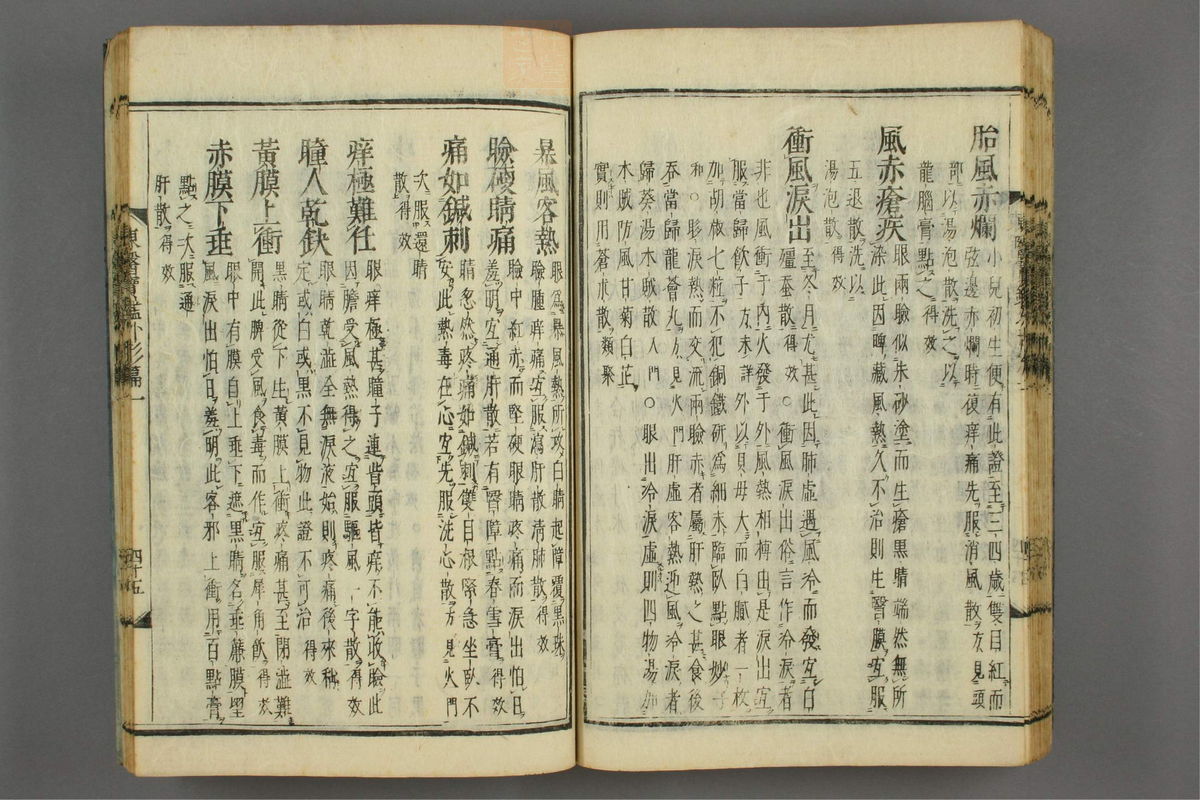 胎風赤爛 小兒初生便有此證至三四歲雙目紅而
弦邊赤爛時復痒痛先服消風散方見頭
部以湯泡散洗之以
龍腦膏點之得效
風赤瘡疾 眼兩瞼似朱砂塗而生瘡黑睛端然無所
染此因脾藏風熱久不治則生瞖膜宜服
五退散洗以
湯泡散得效
衝風淚出 至冬月尤甚此因肺虛遇風冷而發宜白
殭蚕散得效○衝風淚出俗言作冷淚者
非也風衝于內火發于外風熱相搏由是淚出宜
服當歸飲子方未詳外以貝母大而白膩者一枚
加胡椒七粒不犯銅鐵研爲細末臨臥點眼妙子
和○眵淚熱而交流兩瞼赤者屬肝熱之甚食後
呑當歸龍薈丸方見火門肝虛客熱迎風冷淚者
歸葵湯木賊散入門○眼出冷淚虛則四物湯加
木賊防風甘菊白芷
實則用蒼朮散類聚
暴風客熱 眼爲暴風熱所攻白睛起障覆黑珠
瞼腫痒痛宜服瀉肝散淸肺散得效
瞼硬睛痛 瞼中紅赤而堅硬眼睛疼痛而淚出怕日
羞明宜通肝散若有瞖障點春雪膏得效
痛如鍼刺 睛忽然疼痛如鍼刺雙目根緊急坐臥不
安此熱毒在心宜先服洗心散方見火門
次服還睛
散得效
痒極難任 眼痒極甚瞳子連眥頭皆痒不能收瞼此
因膽受風熱得之宜服驅風一字散得效
瞳人乾缺 眼睛乾澁全無淚液始則疼痛後來稱
定或白或黑不見物此證不可治得效
黃膜上衝 黑睛從下生黃膜上衝疼痛甚至閉澁難
開此脾受風食毒而作宜服犀角飮得效
赤膜下垂 眼中有膜自上垂下遮黑睛名垂簾膜瞖
風淚出怕日羞明此客邪上衝用百點膏
點之次服通
肝散得效
東醫寶鑑外形篇一
四十五